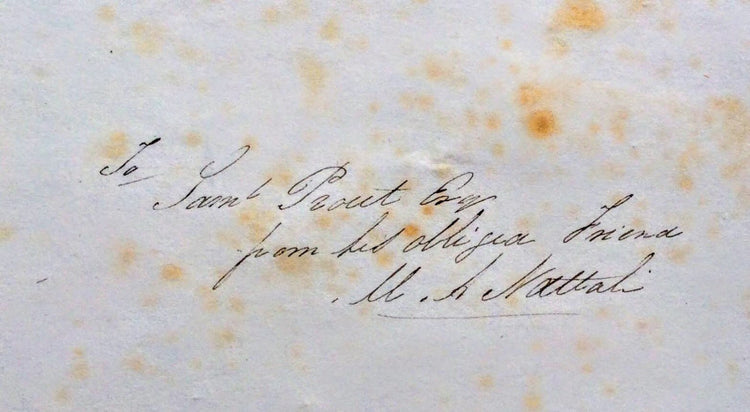 To
Saml Prout Esq
from his obliged Friend
M A Nattali